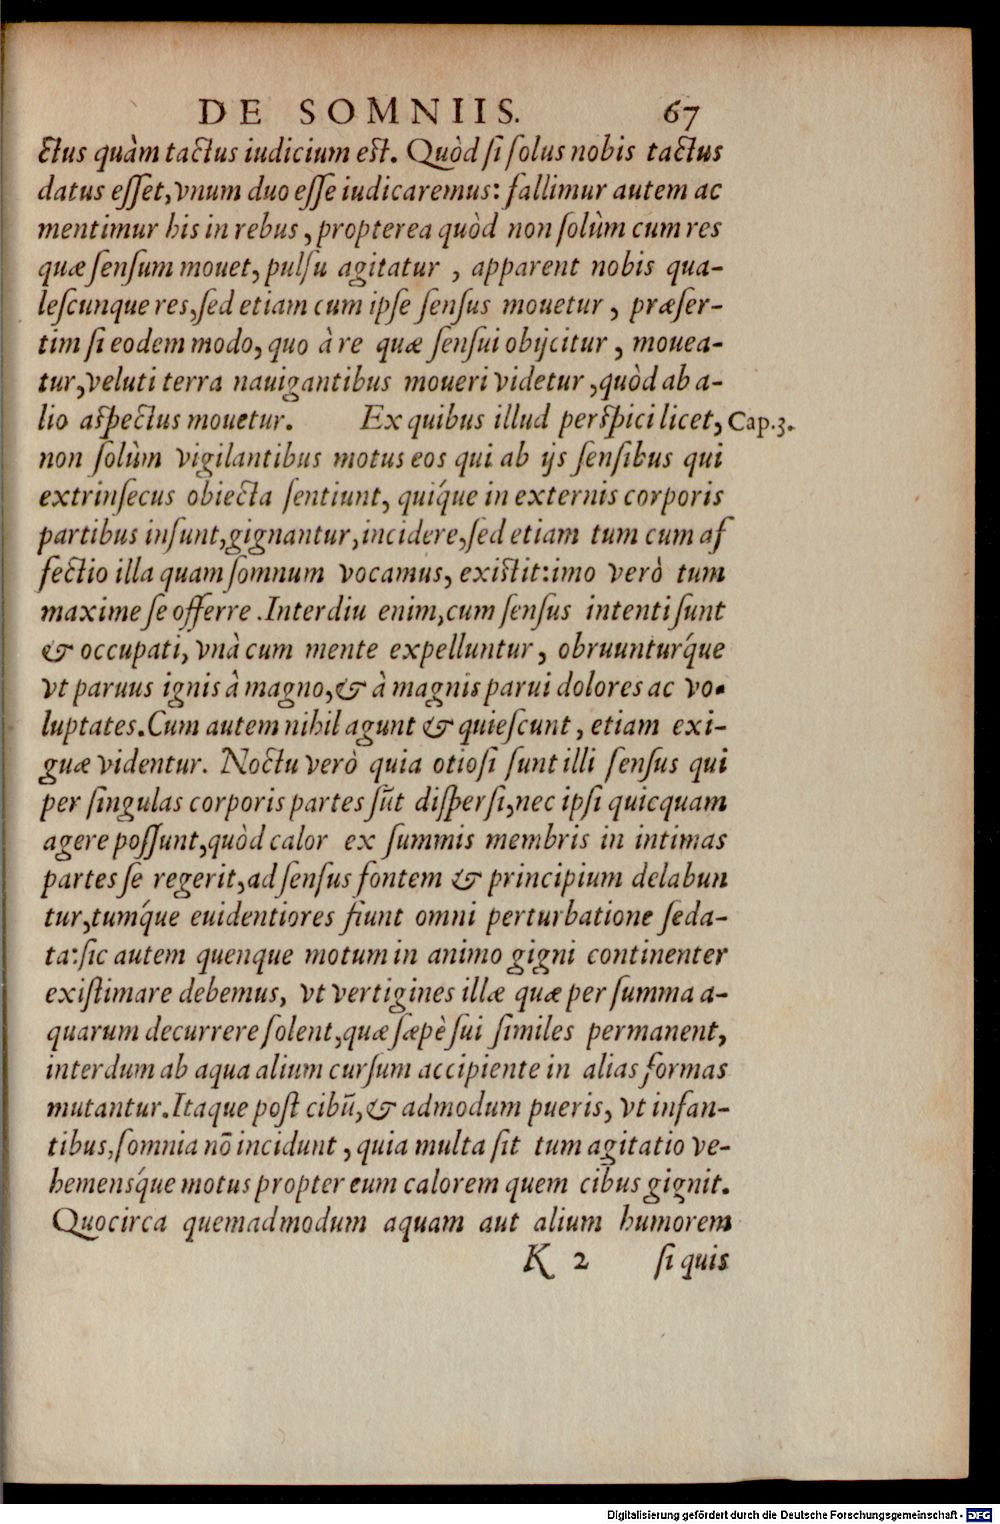 DE SOMNIIS. 67
ctus quàm tactus iudicium est. Quòd si solus nobis tactus
datus esset, vnum duo esse iudicaremus: fallimur autem ac
mentimur his in rebus, propterea quòd non solùm cum res
quæ sensum mouet, pulsu agitatur, apparent nobis qua-
lescunque res, sed etiam cum ipse sensus mouetur, præser-
tim si eodem modo, quo à re quæ sensui obijcitur, mouea-
tur, veluti terra nauigantibus moueri videtur, quòd ab a-
lio aspectus mouetur. Ex quibus illud perspici licet, Cap.3.
non solùm vigilantibus motus eos qui ab ijs sensibus qui
extrinsecus obiecta sentiunt, quíque in externis corporis
partibus insunt, gignantur, incidere, sed etiam tum cum af
fectio illa quam somnum vocamus, existit: imo verò tum
maxime se offerre. Interdiu enim, cum sensus intenti sunt
& occupati, vnà cum mente expelluntur, obruunturq́ue
vt paruus ignis à magno, & à magnis parui dolores ac vo-
luptates. Cum autem nihil agunt & quiescunt, etiam exi-
guæ videntur. Noctu verò quia otiosi sunt illi sensus qui
per singulas corporis partes sūt dispersi, nec ipsi quicquam
agere possunt, quòd calor ex summis membris in intimas
partes se regerit, ad sensus fontem & principium delabun
tur, tumq́ue euidentiores fiunt omni perturbatione seda-
ta: sic autem quenque motum in animo gigni continenter
existimare debemus, vt vertigines illæ quæ per summa a-
quarum decurrere solent, quæ sæpè sui similes permanent,
interdum ab aqua alium cursum accipiente in alias formas
mutantur. Itaque post cibū, & admodum pueris, vt infan-
tibus, somnia nō incidunt, quia multa sit tum agitatio ve-
hemensq́ue motus propter eum calorem quem cibus gignit.
Quocirca quemadmodum aquam aut alium humorem
K 2 si quis
Digitalisierung gefördert durch die Deutsche Forschungsgemeinschaft - DFG